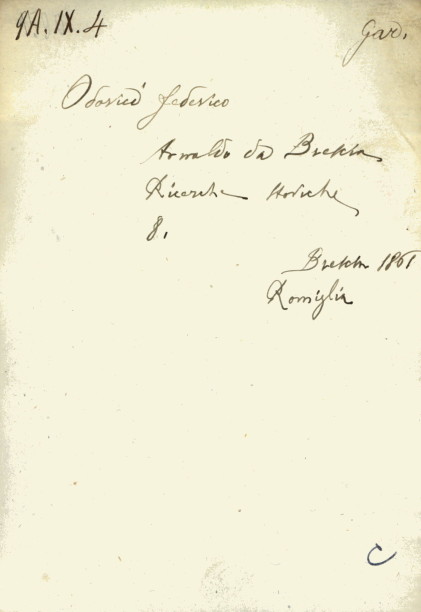 9A.IX.4
Gar.
Odorici Federico
Arnaldo da Brescia
Ricerche storiche
8.
Brescia 1861
Romiglia
C